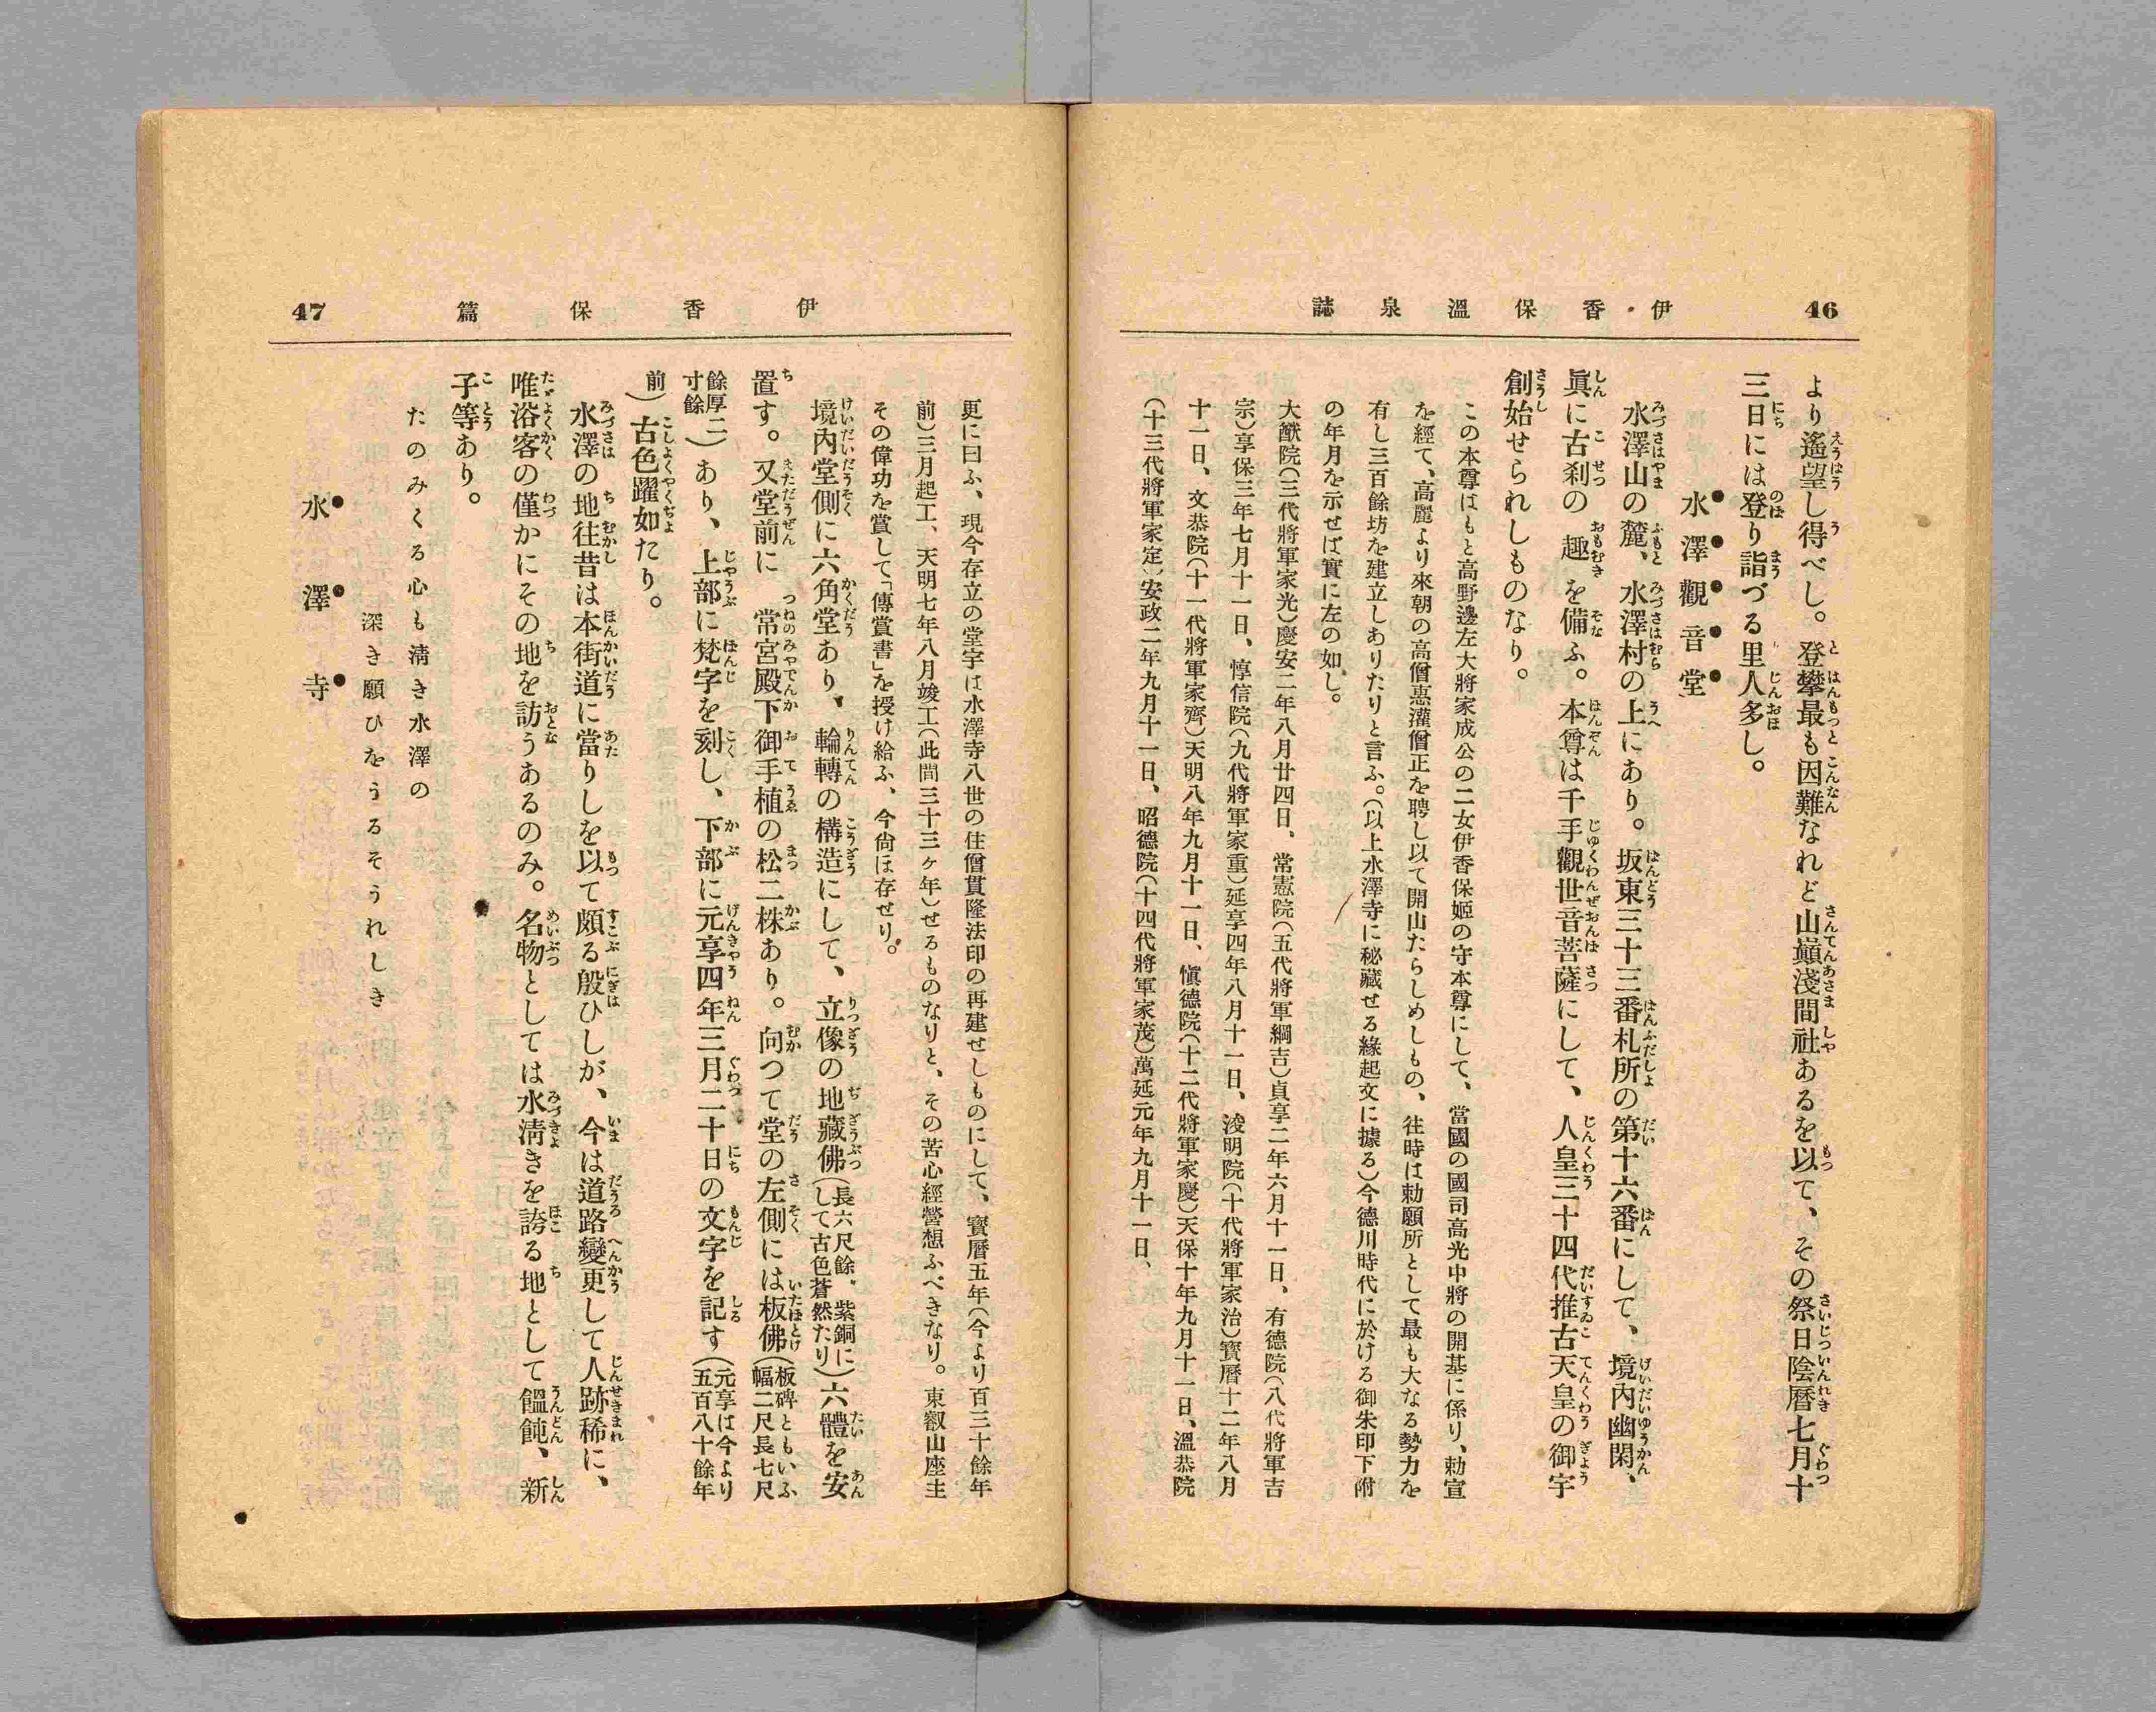 46
伊香保溫泉誌
より遙望し得べし。登攀最も因難なれど山巓淺間社あるを以て、その祭日陰曆七月十
三日には登り詣づる里人多し。
水澤觀音堂
水澤山の麓、水澤村の上にあり。坂東三十三番札所の第十六番にして、境內幽閑、
眞に古刹の趣を備ふ。本尊は千手觀世音菩薩にして、人皇三十四代推古天皇の御宇
創始せられしものなり。
この本尊はもと高野邊左大將家成公の二女伊香保姬の守本尊にして、當國の國司高光中將の開基に係り、勅宣
を經て、高麗より來朝の高僧惠灌僧正を聘し以て開山たらしめしもの、往時は勅願所として最も大なる勢力を
有し三百餘坊を建立しありたりと言ふ。(以上水澤寺に秘藏せる緣起文に據る)今德川時代に於ける御朱印下附
の年月を示せば實に左の如し。
大猷院(三代將軍家光)慶安二年八月廿四日、常憲院(五代將軍綱吉)貞享二年六月十一日、有德院(八代將軍吉
宗)享保三年七月十一日、惇信院(九代將軍家重)延享四年八月十一日、浚明院(十代將軍家治)寶曆十二年八月
十一日、文恭院(十一代將軍家齊)天明八年九月十一日、愼德院(十二代將軍家慶)天保十年九月十一日、溫恭院
(十三代將軍家定)安政二年九月十一日、昭德院(十四代將軍家茂)萬延元年九月十一日、
47
伊香保篇
更に曰ふ、現今存立の堂宇は水澤寺八世の住僧貫隆法印の再建せしものにして、寶曆五年(今より百三十餘年
前)三月起工、天明七年八月竣工(此間三十三ヶ年)せるものなりと、その苦心經營想ふべきなり。東叡山座主
その偉功を賞して「傳賞書」を授け給ふ、今尙ほ存せり。
境內堂側に六角堂あり、輪轉の構造にして、立像の地藏佛(長六尺餘、紫銅にして古色蒼然たり)六體を安
置す。又堂前に常宮殿下御手植の松二株あり。向つて堂の左側には板佛(板碑ともいふ幅二尺長七尺
餘厚二寸餘)あり、上部に梵字を刻し、下部に元享四年三月二十日の文字を記す(元享は今より五百八十餘年
前)古色躍如たり。
水澤の地往昔は本街道に當りしを以て頗る殷ひしが、今は道路變更して人跡稀に、
唯浴客の僅かにその地を訪うあるのみ。名物としては水淸きを誇る地として饂飩、新
子等あり。
たのみくる心も淸き水澤の
深き願ひをうるそうれしき
水澤寺